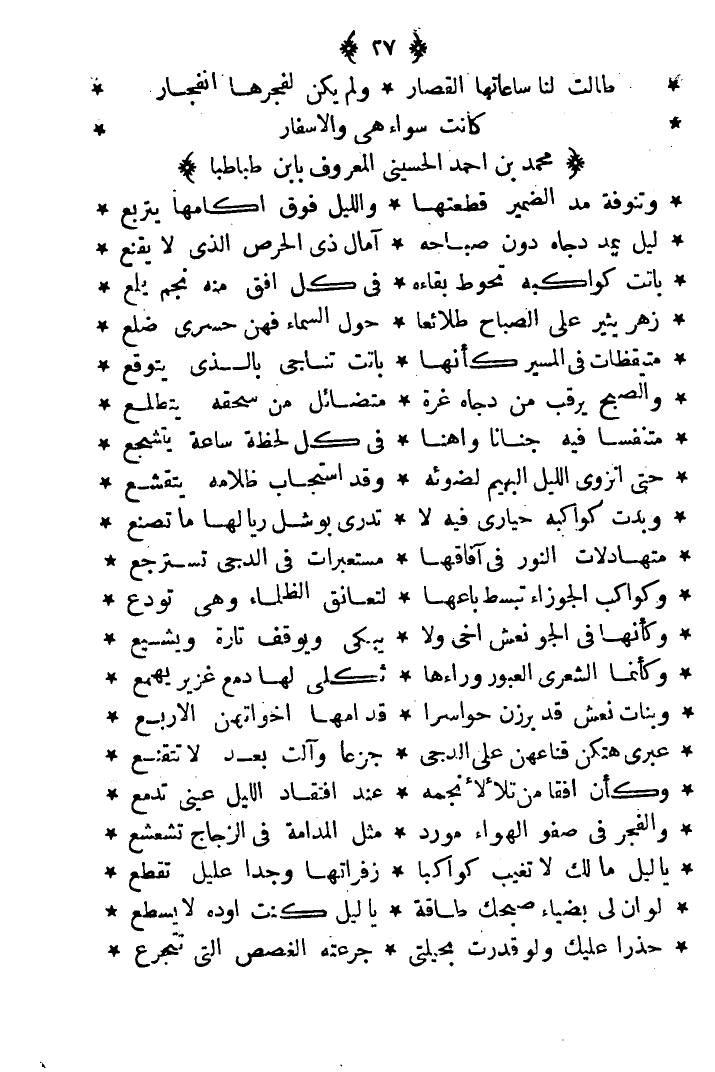 ﴿ ٢٧ ﴾
* طالت لنا ساعاتها القصار * ولم يكن لفجرها انفجار *
* كانت سواء هى والاسفار *
﴿ محمد بن احمد الحسينى المعروف بابن طباطبا ﴾
* وتنوفة مد الضمير قطعتها * والليل فوق اكامها يتربع *
* ليل يمد دجاه دون صباحه * آمال ذى الحرص الذى لا يقنع *
* باتت كواكبه تحوط بقاءه * فى كل افق منه نجم يلع *
* زهر يثير على الصباح طلائعا * حول السماء فهن حسرى ضلع *
* متيقظات فى المسير كأنها * باتت تناجى بالذى يتوقع *
* والصبح يرقب من دجاه غرة * متضائل من سحقه يتطلع *
* متنفسا فيه جنانا واهنا * فى كل لحظة ساعة يتشجع *
* حتى انزوى الليل البهيم لضوئه * وقد استجاب ظلامه يتقشع *
* وبدت كواكبه حيارى فيه لا * تدرى بوشل ريالها ما تصنع *
* متهادلات النور فى آفاقها * مستعبرات فى الدجى تسترجع *
* وكواكب الجوزاء تبسط باعها * لتعانق الظلماء وهى تودع *
* وكأنها فى الجو نعش اخى ولا * يبكى ويوقف تارة ويشيع *
* وكأنما الشعرى العبور وراءها * ثكلى لها دمع غزير يهمع *
* وبنات نعش قد برزن حواسرا * قدامها اخواتهن الاربع *
* عبرى هتكن قناعهن على الدجى * جزعا وآلت بعد لا تتقنع *
* وكأن افقا من تلألأ نجمه * عند افتقاد الليل عينى تدمع *
* والفجر فى صفو الهواء مورد * مثل المدامة فى الزجاج تشعشع *
* يا ليل مالك لا تغيب كواكبا * زفراتها وجدا عليل تقطع *
* لو ان لى بضياء صبحك طاقة * يا ليل كنت اوده لا يسطع *
* حذرا عليك ولو قدرت بحيلتى * جرعته الغصص التى تتجرع *